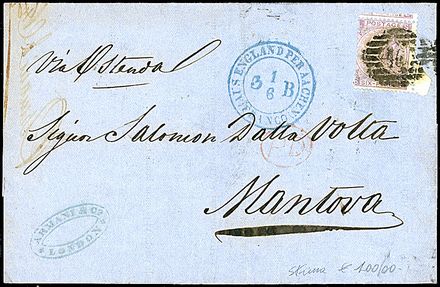 POSTAGE
Via Ostenda
AUS ENGLAND PER AACHEN
FRANCO
1
6
B
Signor Salomon Dalla Volta
Mantova
ARMANI & Co
LONDON
€ 100,00-